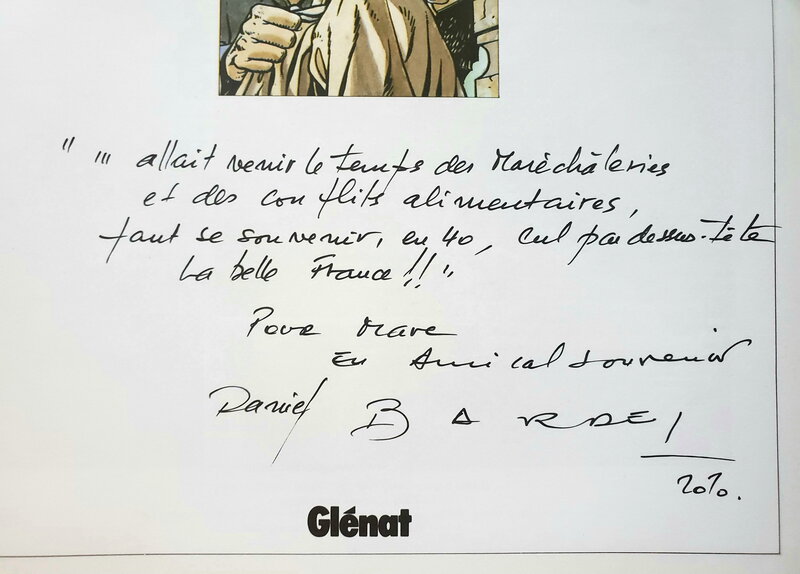 " ... allait venir le temps des Maréchâleries
et des conflits alimentaires,
faut se souvenir, en 40, cul par dessus-tête
la belle France !! "
Pour Marc
En Amical souvenir
Daniel BARDET
2020.
Glénat